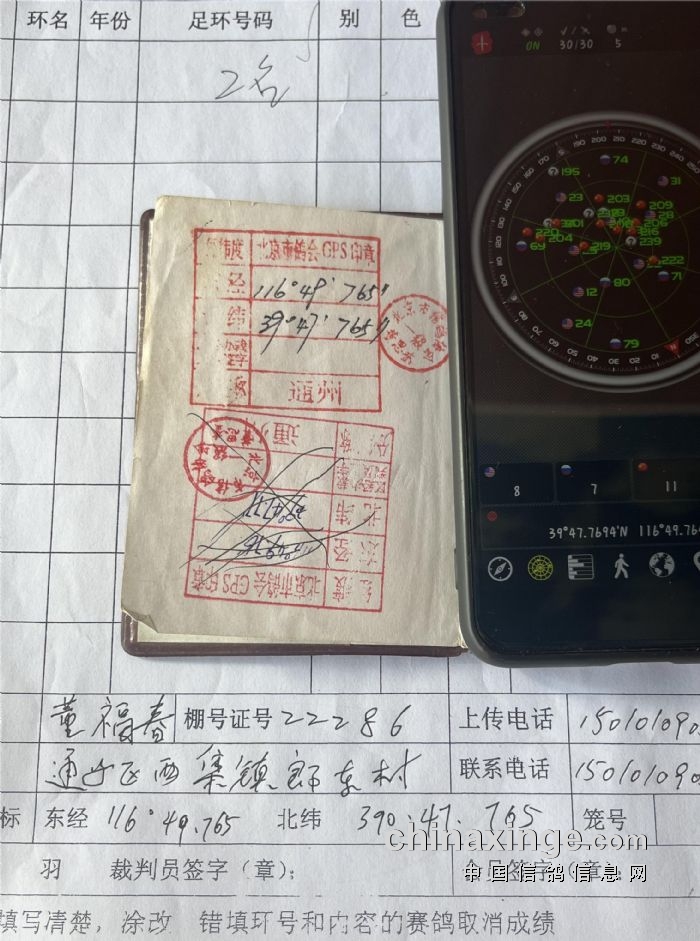 环名 年份 足环号码 别 色
2名
ON 30/30 5
74
195
31
23 203 209
28
220 206
204 216
69 219 239
222
71
12 80
24
79
纬度 北京市鸽会GPS印章
经 116°49′765″
纬 39°47′765″
通州
北京市鸽会GPS印章
8 7 11
39°47.7694'N 116°49.764
董福春 棚号证号 22286 上传电话 150101090
通州区西集镇郎东村 联系电话 150101090
标 东经 116°49.765 北纬 390.47.765 笼号
羽 裁判员签字（章）： 会员签字（章）：
chinaxinge.com
中国信鸽信息网
填写清楚，涂改 错填环号和内容的赛鸽取消成绩